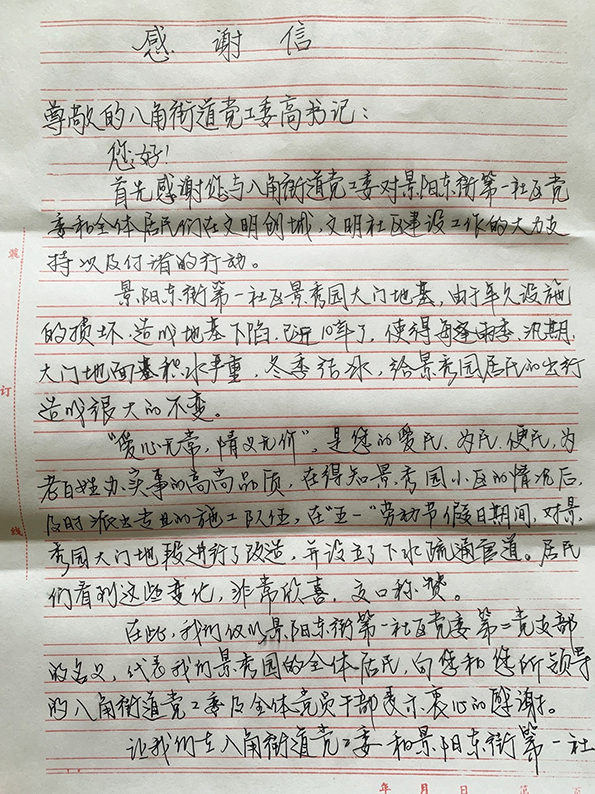 感谢信
尊敬的八角街道党工委高书记：
您好！
首先感谢您与八角街道党工委对景阳东街第一社区党
委和全体居民们在文明创城，文明社区建设工作的大力支
持以及付诸的行动。
景阳东街第一社区景秀园大门地基，由于年久设施
的损坏，造成地基下陷，已近10年了，使得每逢雨季、汛期，
大门地面基积水严重，冬季结冰，给景秀园居民的出行
造成很大的不变。
“爱心无常，情义无价”，是您的爱民、为民、便民，为
老百姓办实事的高尚品质，在得知景秀园小区的情况后，
及时派出专业的施工队伍，在“五一”劳动节假日期间，对景
秀园大门地段进行了改造，并设立了下水疏通管道。居民
们看到这些变化，非常欣喜，交口称赞。
在此，我们仅以景阳东街第一社区党委第二党支部
的名义，代表我们景秀园的全体居民，向您和您所领导
的八角街道党工委及全体党员干部表示衷心的感谢。
让我们在八角街道党工委和景阳东街第一社
装
订
线
年 月 日